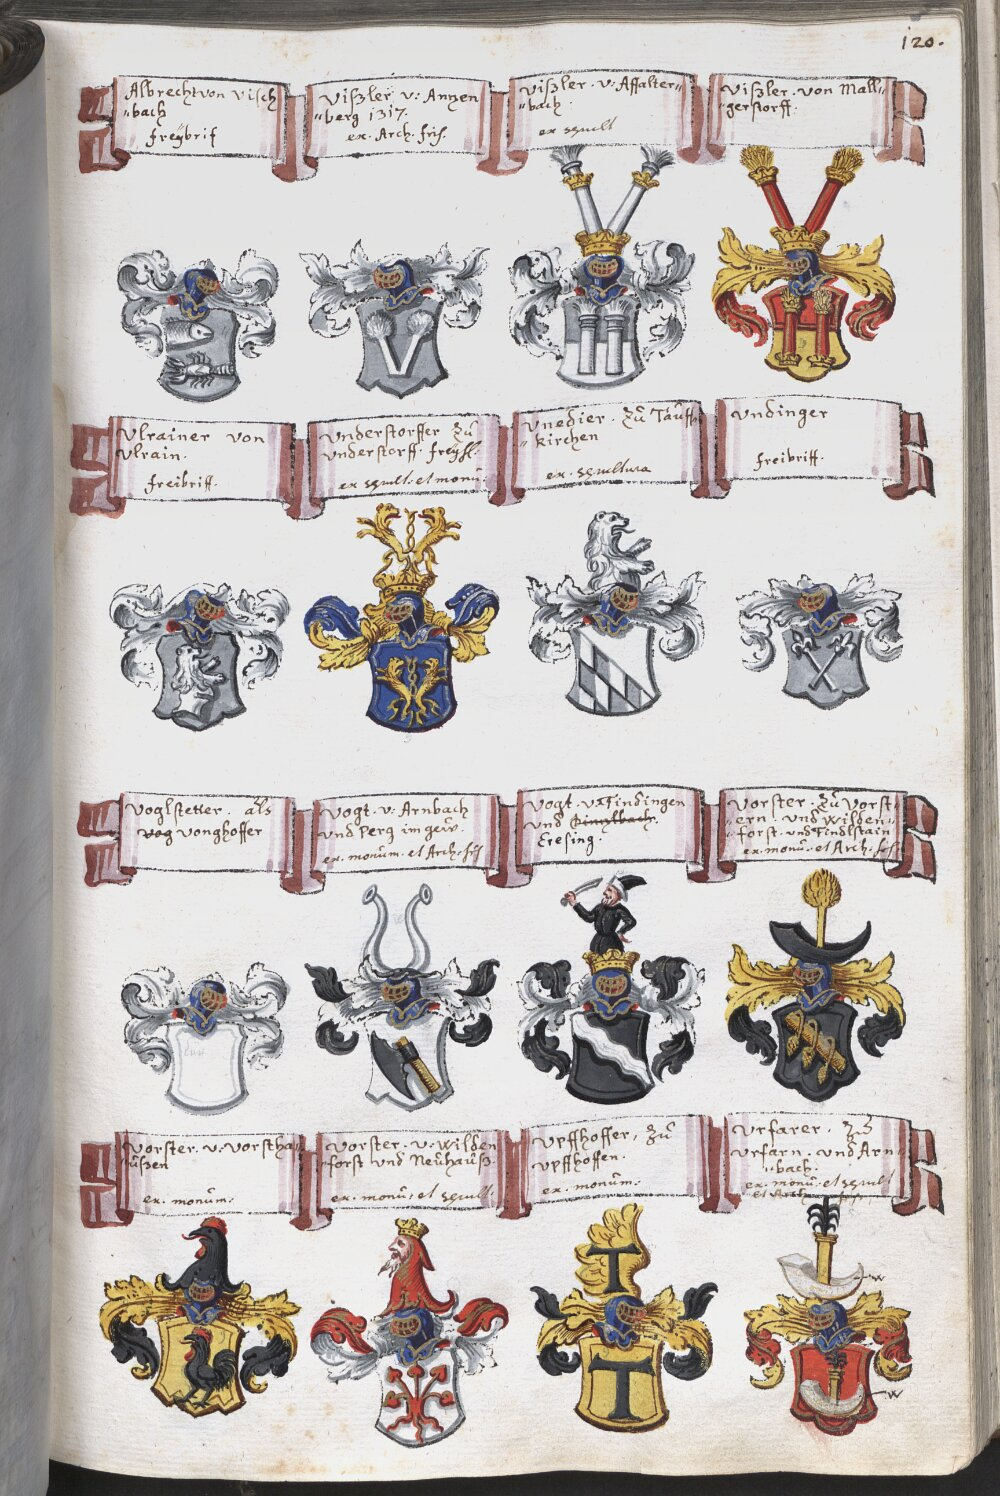 120.
Albrecht von Visch
"bach
freybrif
Viszler v: Annen
"berg 1317.
ex. Arch. fris.
Viszler. v: Affalter"
"bach.
ex sculpt
Viszler. von Mall"
"gerstorff.
Ulrainer von
Ulrain.
freibriff.
Understorffer zů
Understorff. freysl.
ex sculpt. et monu.
Unedier. Zů Tauff"
"kirchen
ex. sculptura
Undinger
freibriff.
Voglstetter. als
vog vonghoffer
Vogt. v: Arnbach
und Perg im geu.
ex. monum. et Arch. fris
Vogt. v: Findingen
und
Eresing.
Vorster. Zů Vorst"
"ern. und Wilden"
"forst. und Findlstain
ex. monu. et Arch. fris
Vorster. v: Vorstha"
"üszen
ex. monum:
Vorster. v: Wilden
"forst und Neühaüsz.
ex. monu: et sculpt.
Upffhoffer, zů
Upffhoffen.
ex. monum:
Urfarer. Zů
Urfarn. und Arn"
"bach.
ex. monu. et sculpt
et Arch. fris.
w
w